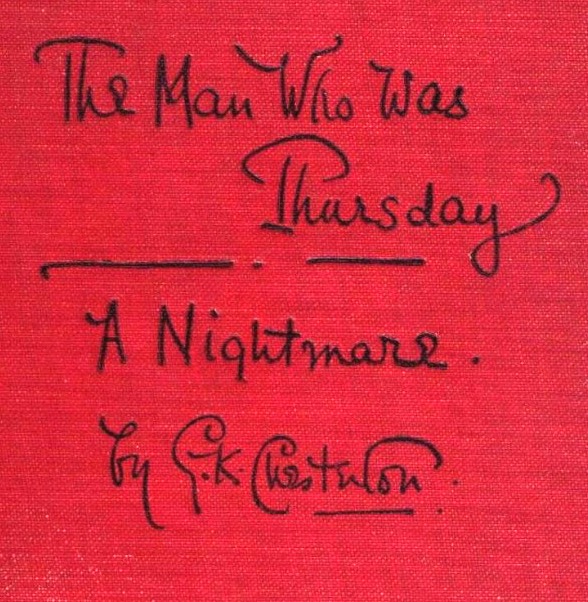 The Man Who Was
Thursday
A Nightmare.
by G.K. Chesterton.